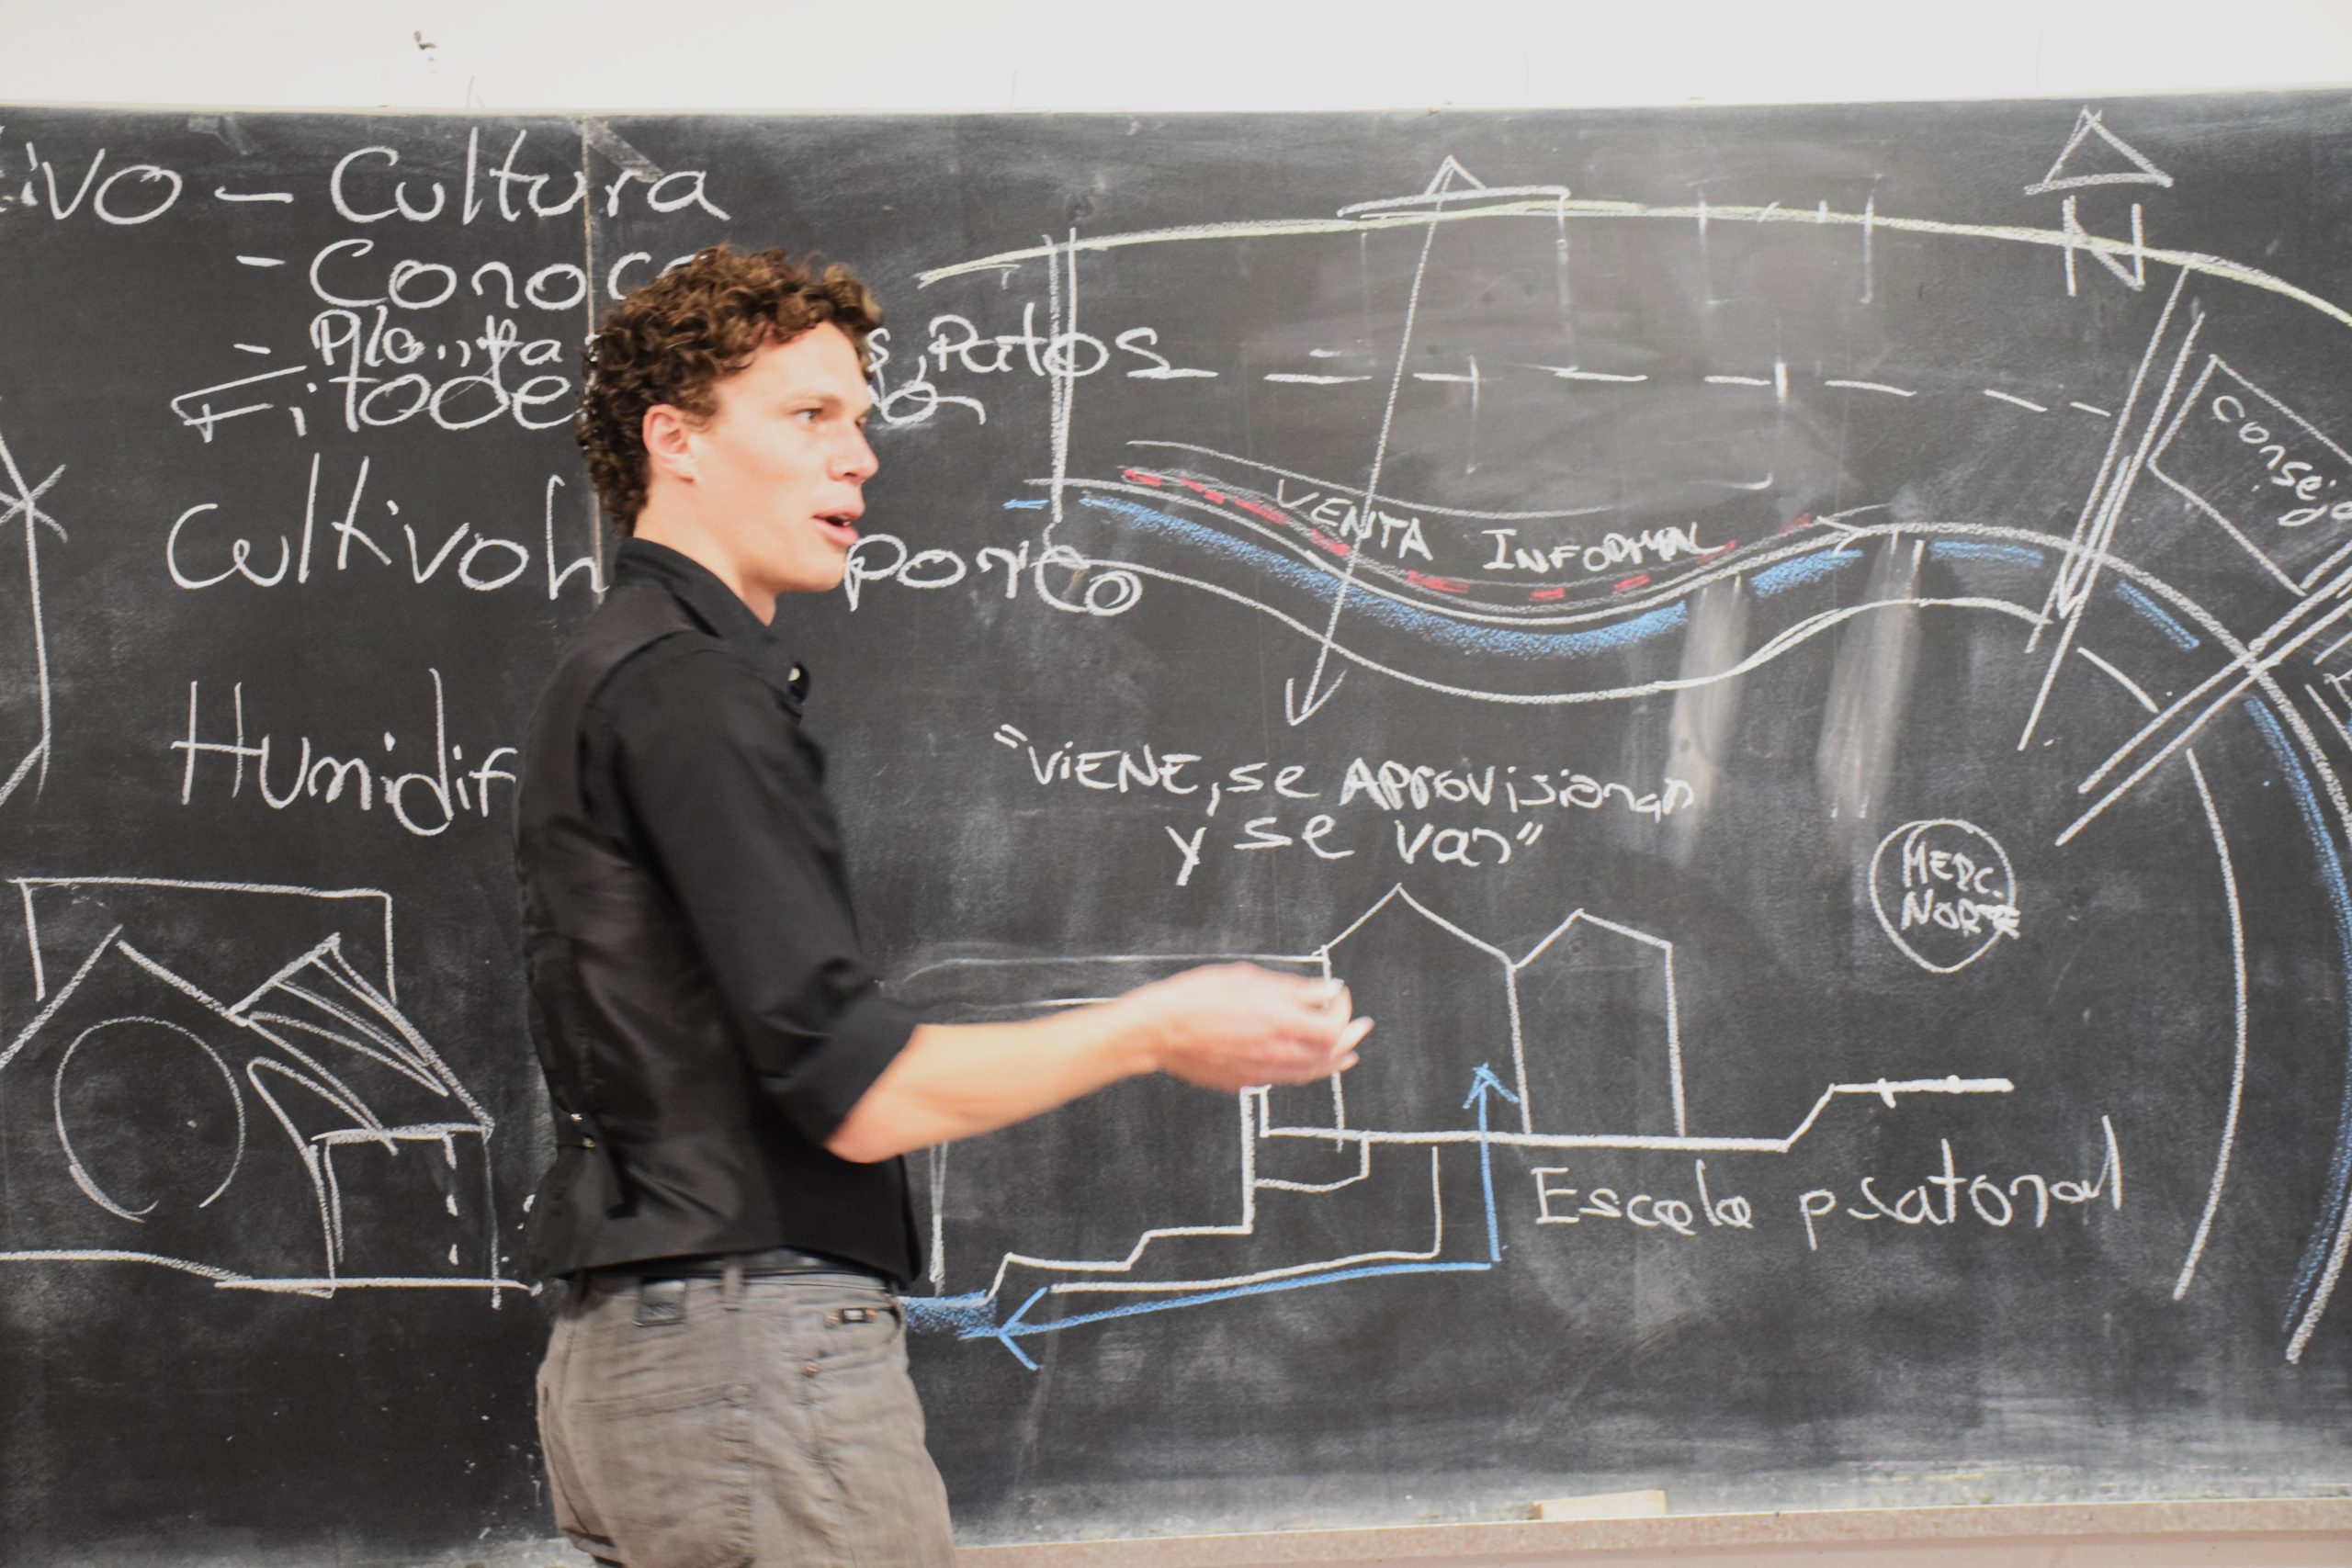 ivo - Cultura
- Conoc
- Planta s, Patos
Fitode
Cultivo h pónico
Humidif
N
Consejo
VENTA INFORMAL
"VIENE, se APROVISIONAN
y se van"
MERC.
NORTE
Escala peatonal